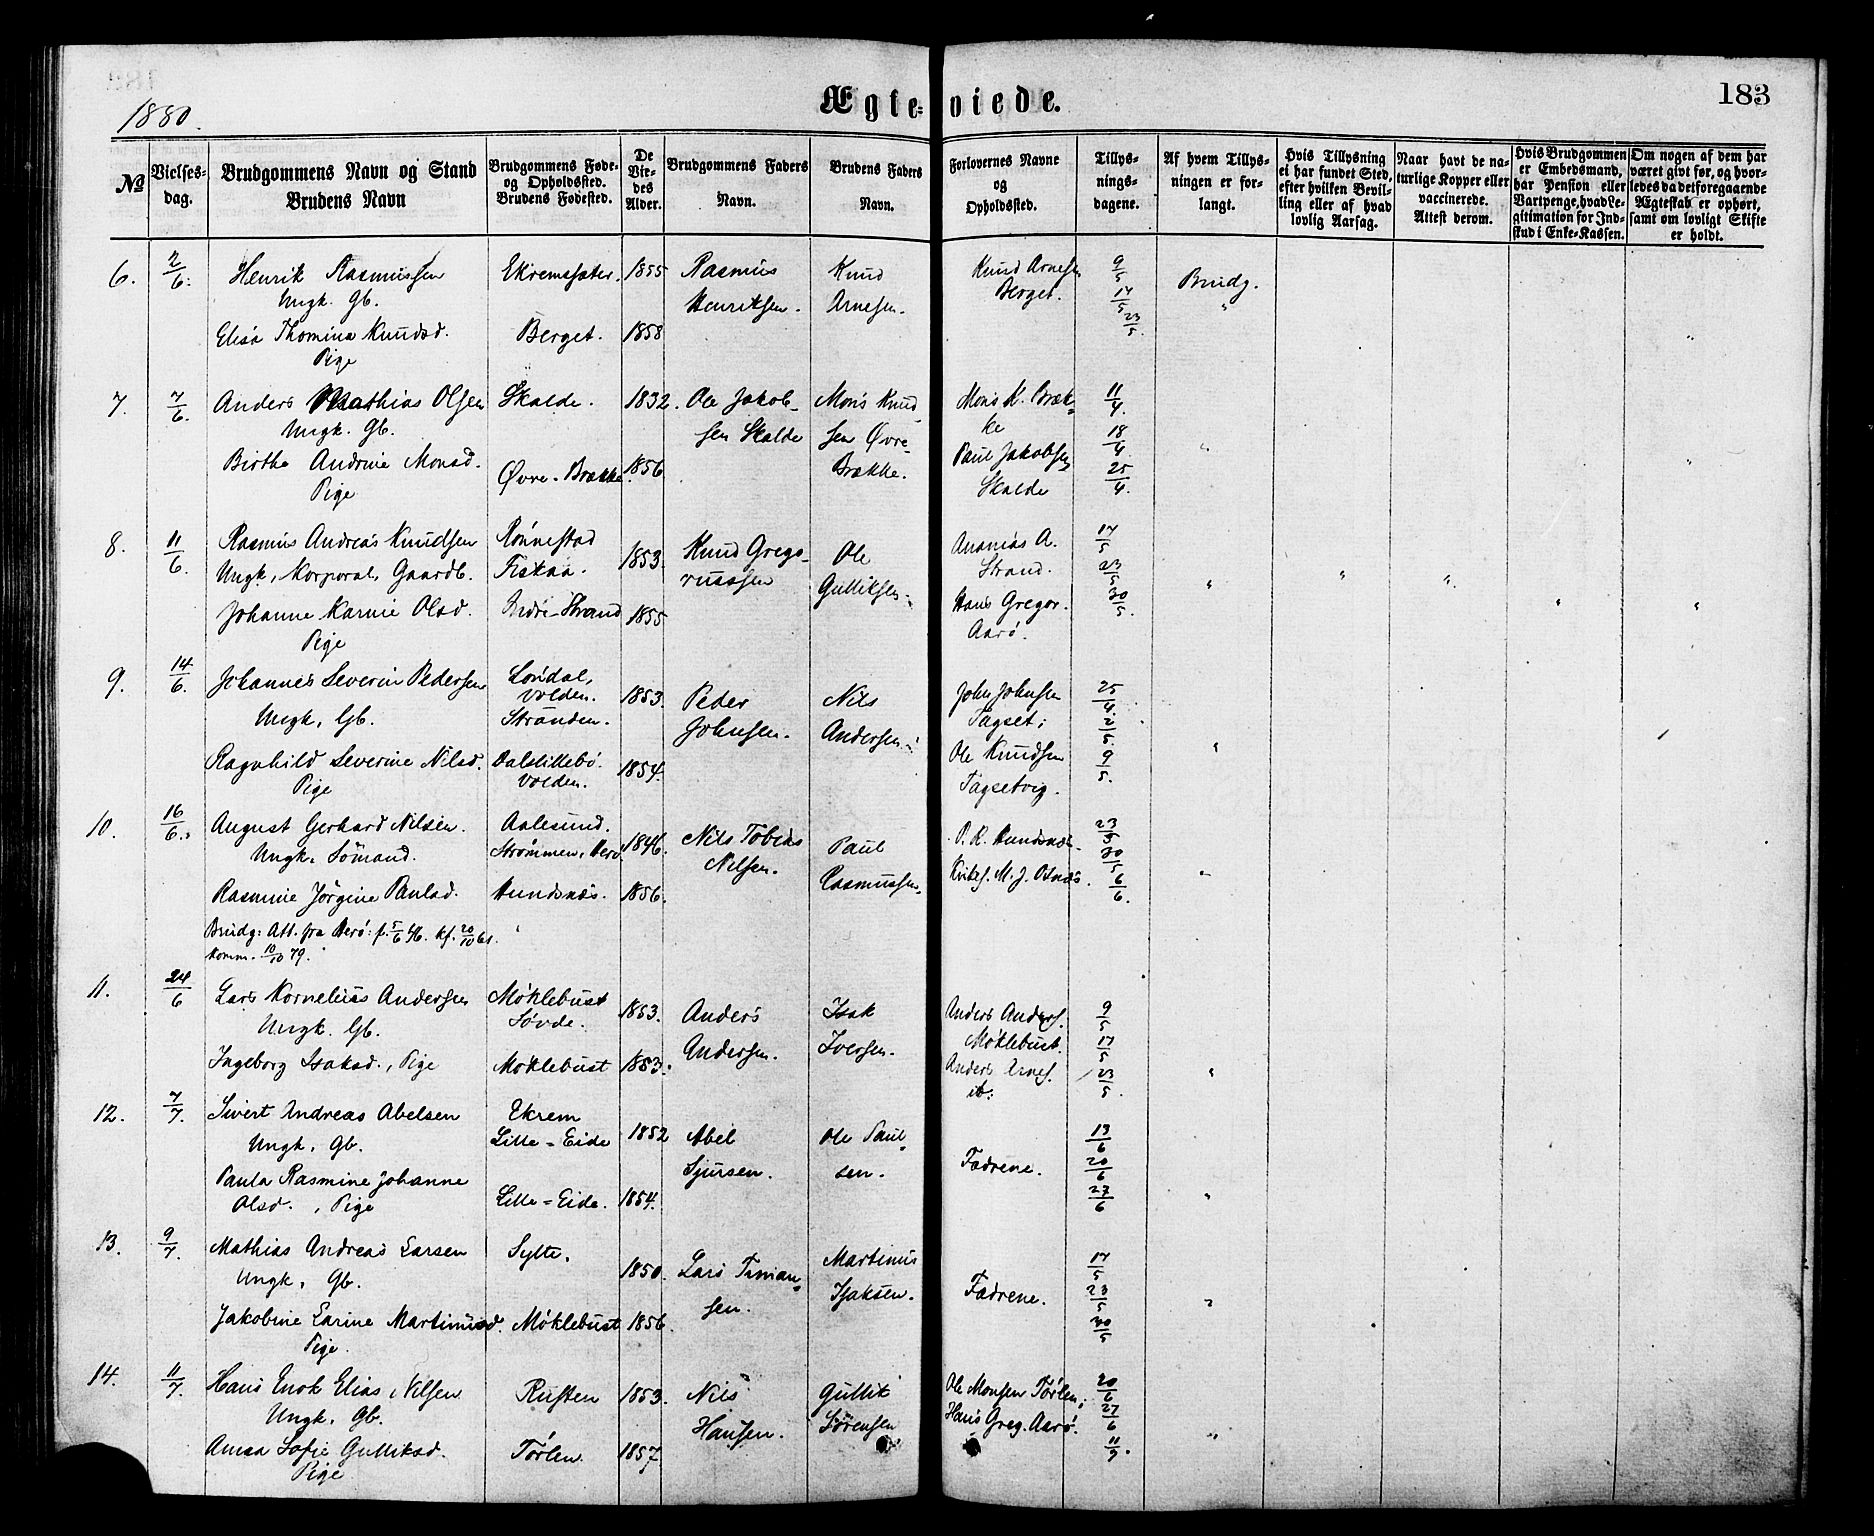 1880.
Ægteviede.
183
№
Vielses-
dag.
Brudgommens Navn og Stand
Brudens Navn
Brudgommens Føde-
og Opholdssted.
Brudens Fødested.
De
Vie-
des
Alder.
Brudgommens Faders
Navn.
Brudens Faders
Navn.
Forlovernes Navne
og
Opholdssted.
Tillys-
nings-
dagene.
Af hvem Tillys-
ningen er for-
langt.
Hvis Tillysning
ei har fundet Sted,
efter hvilken Bevil-
ling eller af hvad
lovlig Aarsag.
Naar havt de na-
turlige Kopper eller
vaccinerede.
Attest derom.
Hvis Brudgommen
er Embedsmand,
har Pension eller
Vartpenge, hvad Le-
gitimation for Ind-
skud i Enke-Kassen.
Om nogen af dem har
været givt før, og hvor-
ledes da det foregaaende
Ægteskab er ophørt,
samt om lovligt Skifte
er holdt.
6. 2/6. Henrik Rasmussen Ekremsæter. 1855 Rasmus Knud Knud Arnesen 9/5 Brudg.
Ungk. Gb. Henriksen. Arnesen. Berget. 17/5 "
Elisa Thomina Knudsd. Berget. 1858 23/5. "
Pige
7. 7/6 Anders Mathias Olsen Skalde. 1832. Ole Jakob- Mons Knud Mons K. Bræk- 11/4.
Ungk. Gb. sen Skalde sen Øvre- ke 18/4 "
Birthe Andrine Monsd. Øvre-Brække. 1856 Brække. Paul Jakobsen 25/4. "
Pige Skalde
8. 11/6 Rasmus Andreas Knudsen Rønnestad 1853. Knud Grego- Ole Ananias A. 17/5
Ungk, Korporal, Gaardb. Fiskaa. russen Gulliksen. Strand. 23/5 " " " " "
Johanne Karine Olsd. Indre-Strand 1855 Hans Gregor. 30/5.
Pige Aarø.
9. 14/6. Johannes Severin Pedersen Løndal, 1853. Peder Nils John Johnsen 25/4.
Volden.
Ungk, Gb. Stranden. Johnsen. Andersen. Tagset; 2/5.
Ragnhild Severine Nilsd. Dalslillebø. 1854. Ole Knudsen 9/5. "
Pige Volden. Tagsetvig.
10. 16/6. August Gerhard Nilsen. Aalesund. 1846. Nils Tobias Paul P. R. Hundsnæs. 23/5
Ungk. Sømand. Strømmen, Herø. Nilsen. Rasmussen. 30/5
Rasmine Jørgine Paulsd. Hundsnæs. 1856. Kirkes. M. J. Osnæs. 6/6. "
Brudg: Att. fra Herø: f. 5/6 46. kf. 20/10 61.
Komm. 10/10 79.
11. 24/6 Lars Kornelius Andersen Møklebust 1853. Anders Isak Anders Anders. 9/5
Ungk. Gb. Søvde. Andersen. Iversen. Møklebust. 17/5
Ingeborg Isaksd., Pige Møklebust 1853. Anders Arnes. 23/5. "
ib:
12. 7/7. Sivert Andreas Abelsen Ekrem 1852 Abel Ole Paul- 13/6
Ungk, Gb. Lille-Eide Sjursen. sen. Fædrene. 20/6
Paula Rasmine Johanne
Olsd., Pige Lille-Eide. 1854. 27/6 "
13. 9/7. Mathias Andreas Larsen Sylte. 1850. Lars Timian- Martinus 17/5
Ungk, Gb. sen. Isaksen. Fædrene. 23/5 "
Jakobine Larine Martinusd. Møklebust 1856. 30/5
Pige.
14. 11/7. Hans Enok Elias Nilsen Rusten 1853. Nils Gullik Ole Monsen Tørlen; 20/6
Ungk. Gb. Hansen. Sørensen Hans Greg. Aarø. 27/6 "
Anna Sofie Gulliksd. Tørlen. 1857.
Pige